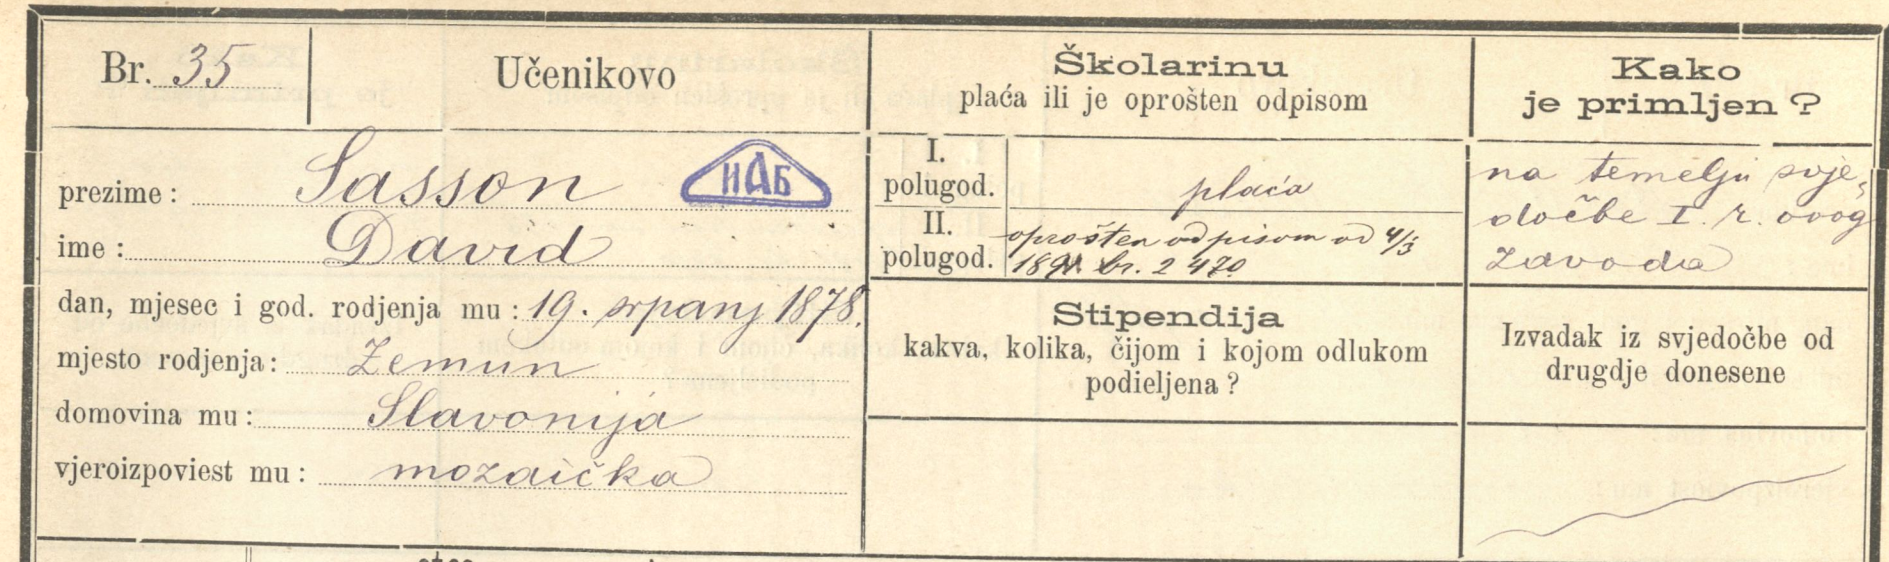 Br. 35
Učenikovo
prezime: Sasson
ИАБ
ime: David
dan, mjesec i god. rodjenja mu: 19. srpanj 1878.
mjesto rodjenja: Zemun
domovina mu: Slavonija
vjeroizpoviest mu: mozaička
Školarinu
plaća ili je oprošten odpisom
I.
polugod.
plaća
II.
polugod.
oprošten odpisom od 4/3
br. 2 470
Stipendija
kakva, kolika, čijom i kojom odlukom
podieljena?
Kako
je primljen?
na temelju svje-
dočbe I. r. ovog
zavoda
Izvadak iz svjedočbe od
drugdje donesene